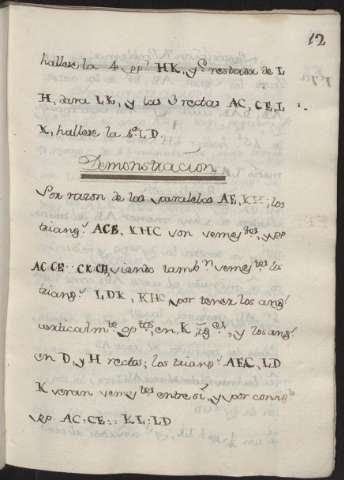 12
hallese la 4 pp.l HK, y q.e restada de L
H, dara LK, y las 3 rectas AC, CE, L
K, hallese la 4.a LD.
Demonstracion
Por razon de las paralelas AE, KH; los
triang.s ACE, KHC son semej.tes, y pp
AC:CE::CK:CH, siendo tamb.n semej.tes los
triang.s LDK, KHC por tener los ang.s
verticalm.te op.tos, en K, y los ang.s
en D, y H rectos; los triang.s AEC, LD
K seran semej.tes entre si, y por consig.te
pp. AC:CE::KL:LD